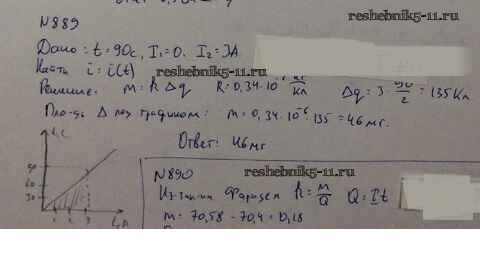 N889
reshebnik5-11.ru
Дано: t = 90с, I₁ = 0. I₂ = 3А
i = i(t)
reshebnik5-11.ru
Решение: m = k Δq k = 0,34·10⁻⁶ кг/Кл Δq = 3·90/2 = 135 Кл
Пло-дь Δ под графиком: m = 0,34·10⁻⁶·135 = 46 мг.
Ответ: 46 мг
t, с
90
60
30
1 2 3
I, А
reshebnik5-11.ru
N890
Из закона Фарадея k = m/Q Q = It
m = 70,58 - 70,4 = 0,18